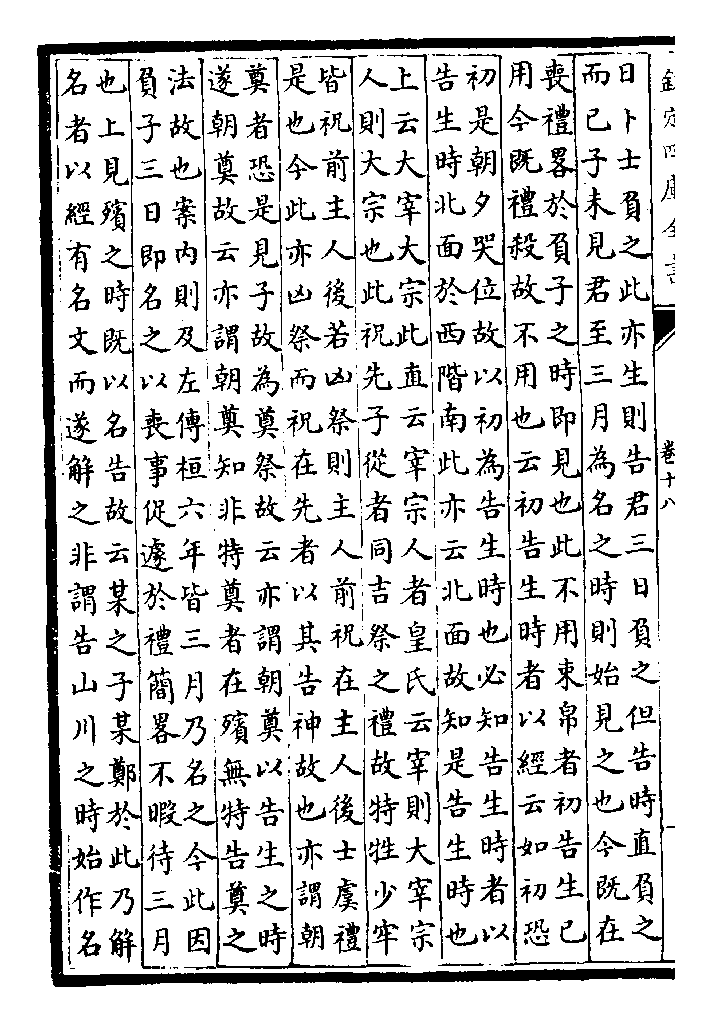 欽定四庫全書
卷十八
日卜士負之此亦生則告君三日負之但告時直負之
而已子未見君至三月為名之時則始見之也今既在
喪禮畧於負子之時即見也此不用束帛者初告生已
用今既禮殺故不用也云初告生時者以經云如初恐
初是朝夕哭位故以初為告生時也必知告生時者以
告生時北面於西階南此亦云北面故知是告生時也
上云大宰大宗此直云宰宗人者皇氏云宰則大宰宗
人則大宗也此祝先子從者同吉祭之禮故特牲少牢
皆祝前主人後若凶祭則主人前祝在主人後士虞禮
是也今此亦凶祭而祝在先者以其告神故也亦謂朝
奠者恐是見子故為奠祭故云亦謂朝奠以告生之時
遂朝奠故云亦謂朝奠知非特奠者在殯無特告奠之
法故也案內則及左傳桓六年皆三月乃名之今此因
負子三日即名之以喪事促遽於禮簡畧不暇待三月
也上見殯之時既以名告故云某之子某鄭於此乃解
名者以經有名文而遂解之非謂告山川之時始作名